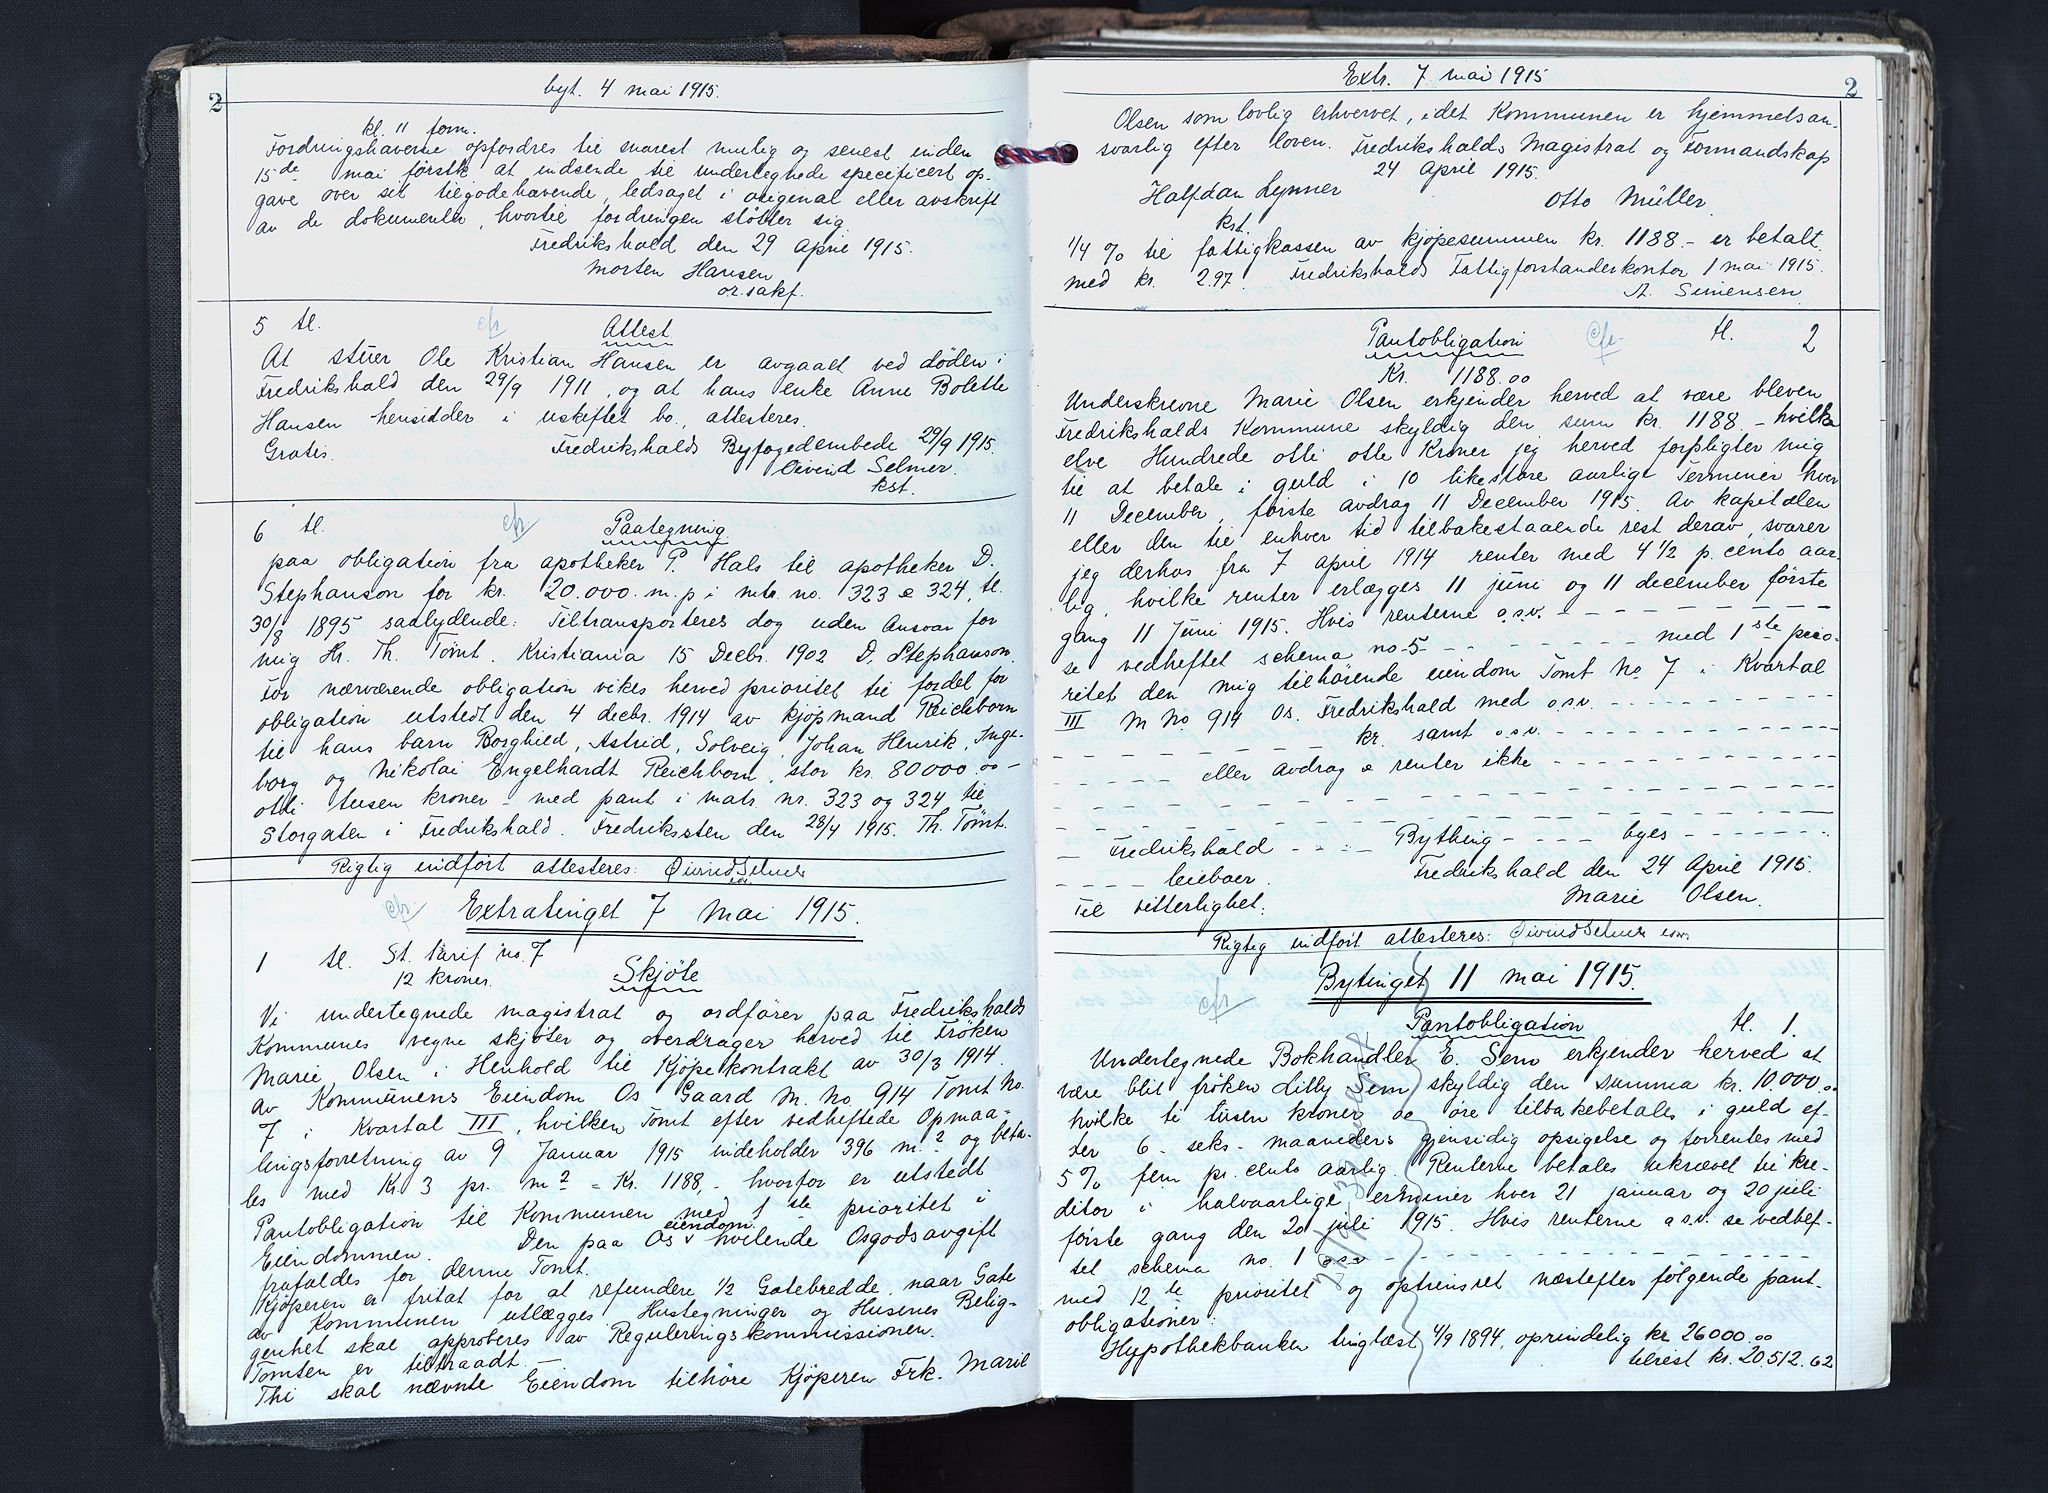 2
byt. 4 mai 1915.
kl. 11 form.
Fordringshaverne opfordres til snarest mulig og senest inden
15de mai førstk. at indsende til undertegnede specificert op-
gave over sit tilgodehavende, ledsaget i original eller avskrift
av de dokumenter, hvortil fordringen støtter sig.
Fredrikshald den 29 april 1915.
Morten Hansen
o.r.sakf.
5 tl. cfr Attest
At stuer Ole Kristian Hansen er avgaat ved døden i
Fredrikshald den 29/9 1911, og at hans enke Anne Bolette
Hansen hensidder i uskiftet bo, attesteres.
Gratis. Fredrikshalds Byfogedembede 29/9 1915.
Øivind Selmer.
kst.
6 tl. cfr Paategning
paa obligation fra apotheker P. Hals til apotheker D.
Stephanson for kr. 20.000. m. p i mtr. no. 323 & 324, tl.
30/8 1895 saalydende: Tiltransporteres dog uden Ansvar for
mig Hr. Th. Tømt. Kristiania 15 Decbr. 1902 D. Stephanson.
For nærværende obligation vikes herved prioritet til fordel for
obligation utstedt den 4 decbr. 1914 av kjøpmand Reichborn
til hans barn Borghild, Astrid, Solveig, Johan Henrik, Inge-
borg og Nikolai Engelhardt Reichborn, stor kr. 80000.00 -
otti tusen kroner - med pant i matr. nr. 323 og 324 til
Storgaten i Fredrikshald. Fredriksten den 28/4 1915. Th. Tømt.
Rigtig indført attesteres: Øivind Selmer
kst.
cfr Extratinget 7 mai 1915.
1 tl. St. tarif no. 7
12 kroner. Skjøte
Vi undertegnede magistrat og ordfører paa Fredrikshalds
Kommunes vegne skjøter og overdrager herved til Frøken
Marie Olsen i Henhold til Kjøpekontrakt av 30/3 1914.
Av Kommunens Eiendom Os Gaard M. No. 914 Tomt No.
7 i Kvartal III, hvilken Tomt efter vedheftede Opmaa-
lingsforretning av 9 Januar 1915 indeholder 396 m.2 og beta-
les med Kr. 3 pr. m2 = Kr. 1188,- hvorfor er utstedt
Pantobligation til Kommunen med 1ste prioritet i
Eiendommen. Den paa Os eiendom hvilende Osgodsavgift
frafaldes for denne Tomt.
Kjøperen er fritat for at refundere 1/2 Gatebredde, naar Gate
av Kommunen utlægges Hustegninger og Husenes Belig-
genhet skal approberes av Reguleringskommissionen.
Tomten er tiltraadt.
Thi skal nævnte Eiendom tilhøre Kjøperen Frk. Marie
Extr. 7 mai 1915
2
Olsen som lovlig erhvervet, idet Kommunen er hjemmelsan-
svarlig efter loven. Fredrikshalds Magistrat og Formandskap
24 April 1915.
Halfdan Lynner Otto Müller
kst.
1/4 % til fattigkassen av kjøpesummen kr. 1188.- er betalt
med kr. 2.97. Fredrikshalds Fattigforstanderkontor 1 mai 1915.
A. Simensen
Pantobligation cfr. tl. 2
Kr. 1188.00
Underskrevne Marie Olsen erkjender herved at være bleven
Fredrikshalds Kommune skyldig den sum kr. 1188.- hvilke
elve Hundrede otti otte Kroner jeg herved forpligter mig
til at betale i guld i 10 like store aarlige Terminer hver
11 December, første avdrag 11 December 1915. Av kapitalen
eller den til enhver tid tilbakestaaende rest derav, svarer
jeg derhos fra 7 april 1914 renter med 4 1/2 p. cento aar-
lig, hvilke renter erlægges 11 juni og 11 december første
gang 11 Juni 1915. Hvis renterne o.s.v. - - -
se vedheftet schema no. 5 - - - med 1ste prio-
ritet den mig tilhørende eiendom Tomt No. 7 i Kvartal
III M No. 914 Os. Fredrikshald med o.s.v. - - -
kr. samt o.s.v. - - -
- - - eller avdrag & renter ikke - - -
- Fredrikshald - - - Bything - - - byes - - -
- - - leieboer. Fredrikshald den 24 April 1915.
Til vitterlighet. Marie Olsen.
Rigtig indført attesteres: Øivind Selmer kst.
cfr Bytinget 11 mai 1915.
Pantobligation tl. 1.
Undertegnede Bokhandler E. Sem erkjender herved at
være blit frøken Lilly Sem skyldig den summa kr. 10.000.00
hvilke ti tusen kroner 00 øre tilbakebetales i guld ef-
ter 6 - seks - maaneders gjensidig opsigelse og forrentes med
5% fem pr. cento aarlig. Renterne betales ukrævet til kre-
ditor i halvaarlige terminer hver 21 januar og 20 juli
første gang den 20 juli 1915. Hvis renterne o.s.v. se vedhef-
tet schema no. 1 o.s.v. - - -
med 12te prioritet og optrinsret næstefter følgende pant-
obligationer:
Hypothekbanken tinglæst 4/9 1894, oprindelig kr. 26000.00
tilrest kr. 20.512.62